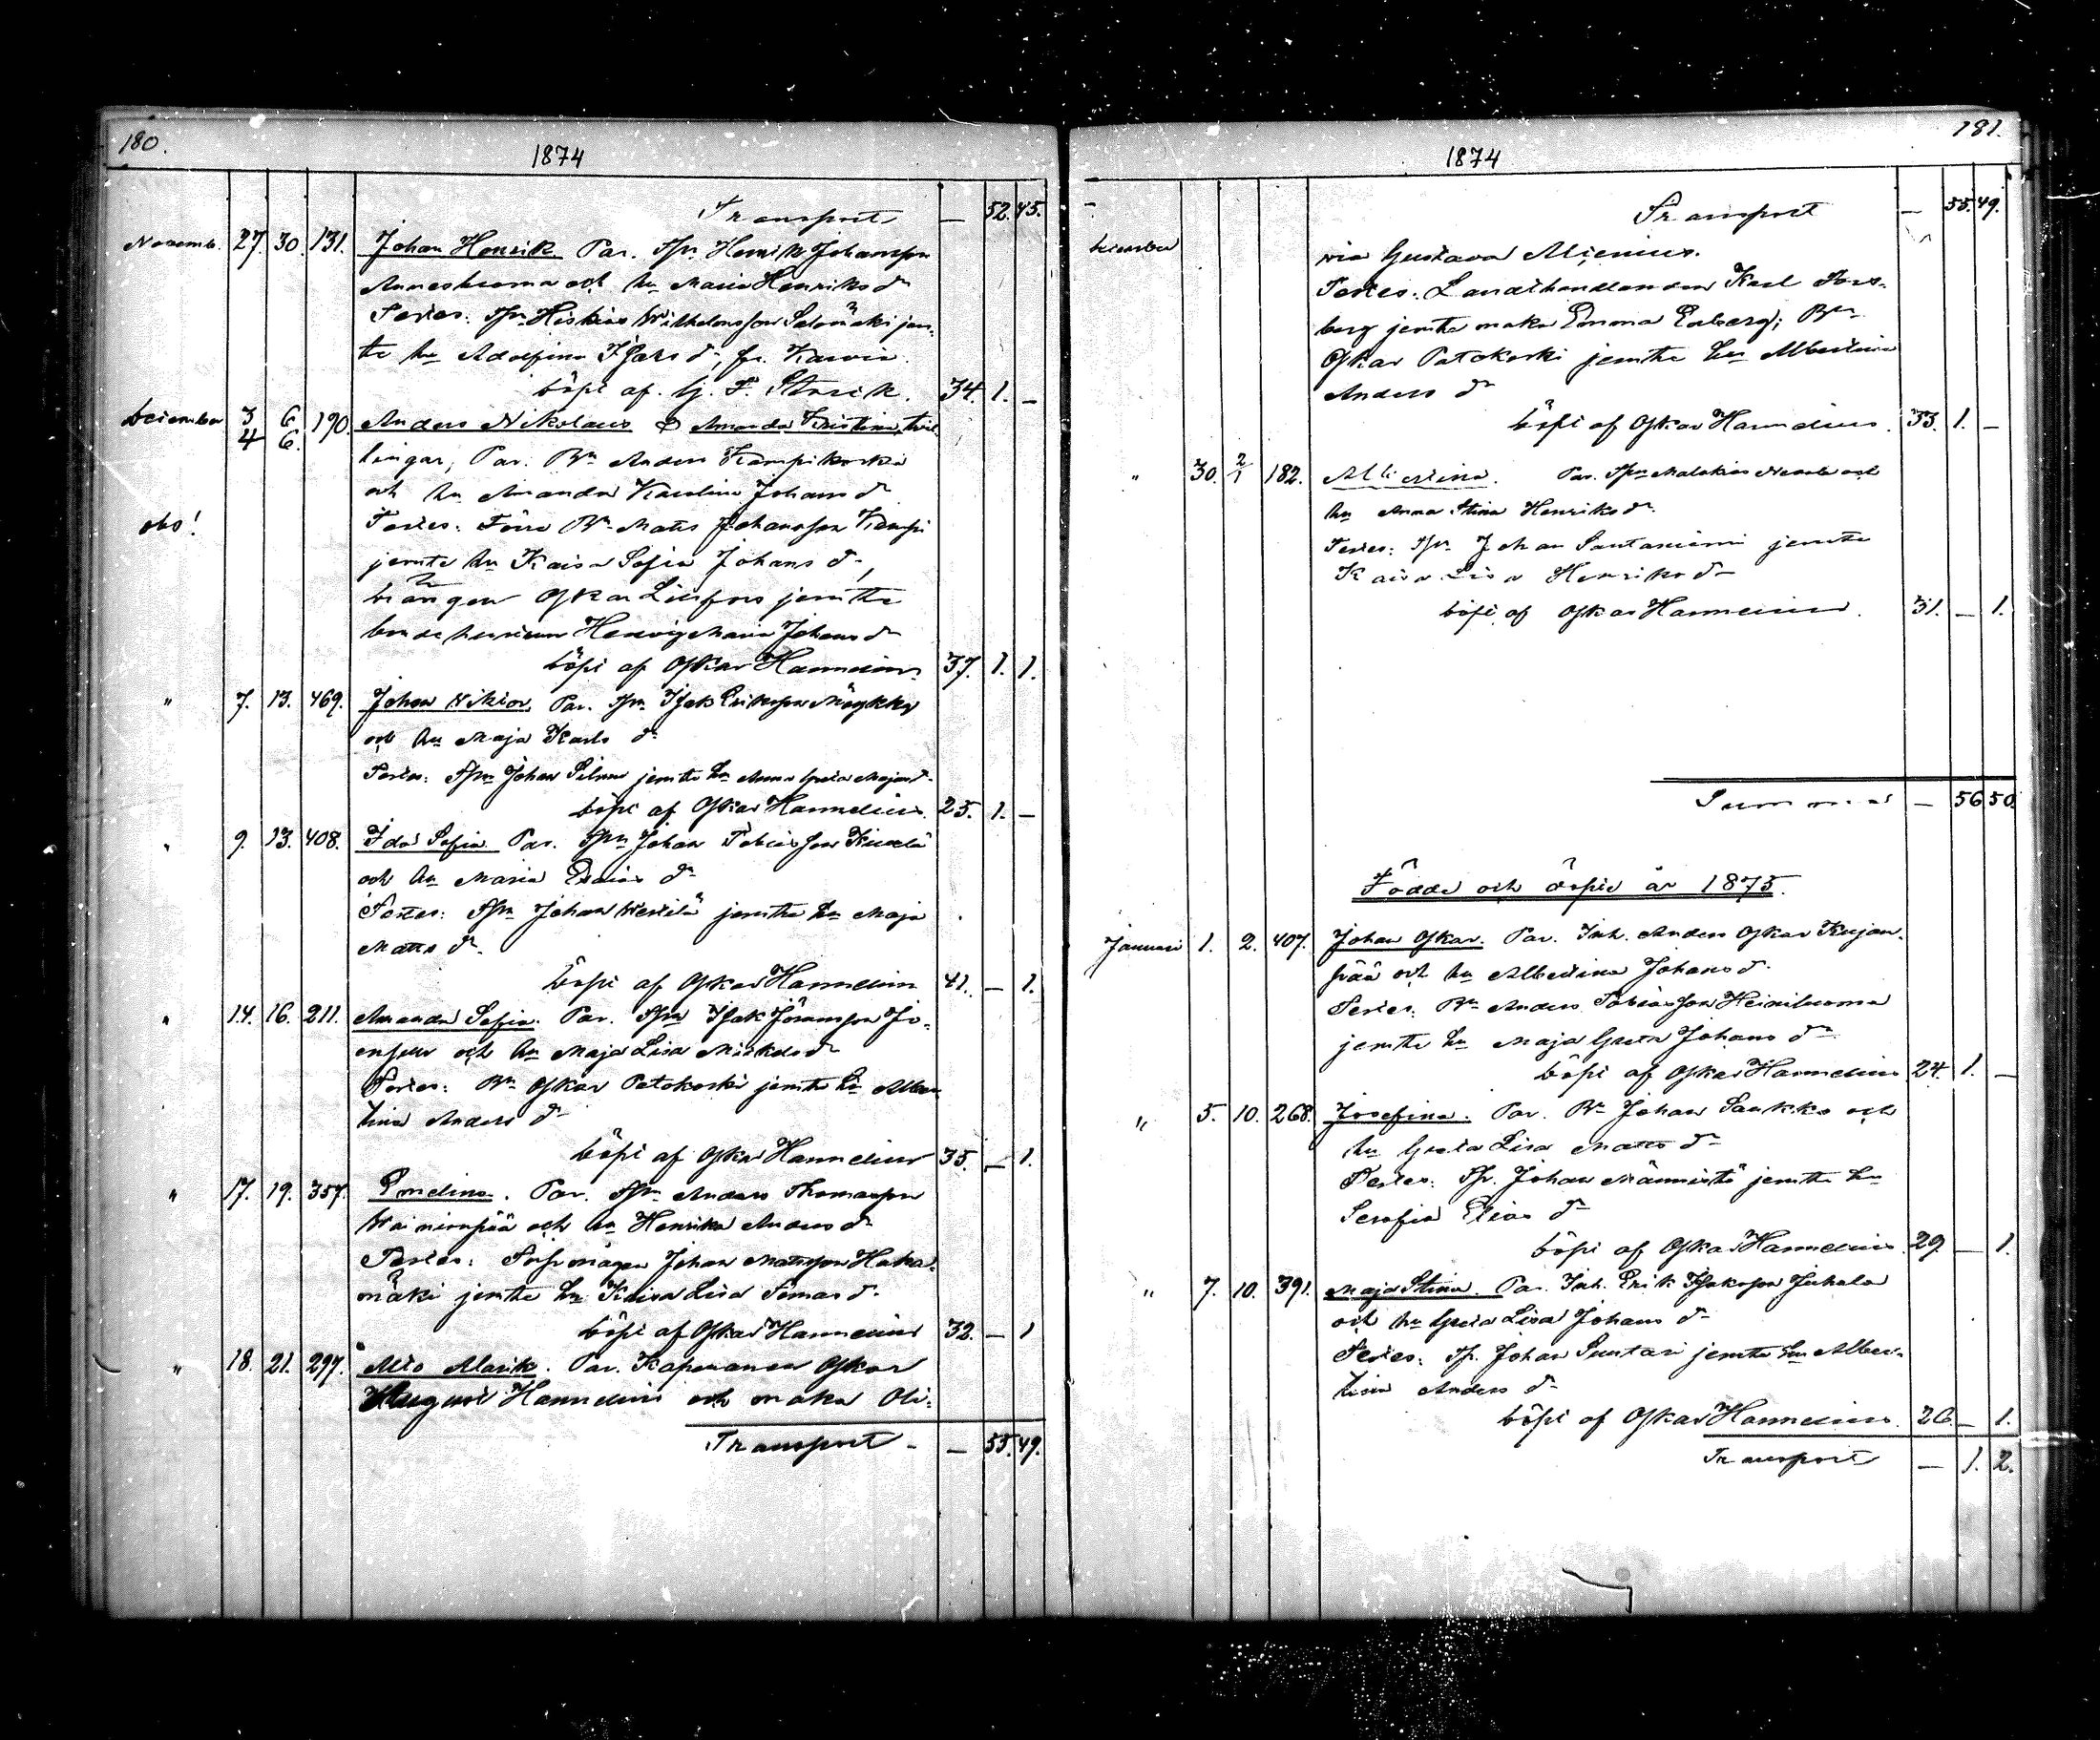 180.
1874
Transport — 52. 45.
Novemb. 27. 30. 131. Johan Henrik. Par. Henrik Johansson
och hu Maria Henriks dr
Testes: Hiskias Wilhelmsson Salomäki jem-
te hu Adolfina Isaks dr, fr. Karvia.
döpt af G. F. Storik. 34. 1. —
December 3 6 190. Anders Nikolaus & Amanda Kristina, tvil-
4 6.
lingar, Par. Bn Anders Kampikoski
och hu Amanda Karolina Johans dr
obs!
Testes: Förre Bn Matts Johansson Kampi
jemte hu Kaisa Sofia Johans dr,
Oskar Lillfors jemte
Hedvig Maria Johans dr
döpt af Oskar Hannelius. 37. 1. 1.
" 7. 13. 469. Johan Viktor. Par. Isak Eriksson Mäykky
och hu Maja Karls dr
Testes: Johan jemte hu Anna Greta
döpt af Oskar Hannelius. 25. 1. —
" 9. 13. 408. Ida Sofia. Par. Johan Tobiasson
och hu Maria Esaias dr
Testes: Johan jemte hu Maja
Matts dr.
döpt af Oskar Hannelius 41. — 1.
" 14. 16. 211. Amanda Sofia. Par. Isak
och hu Maja Lisa Mickels dr
Testes: Bn Oskar Patokoski jemte hu Alber-
tina Anders dr
döpt af Oskar Hannelius 35. — 1.
" 17. 19. 357. Emelina. Par. Anders Thomasson
Wainionpää och hu Henrika Anders dr
Testes: Johan Mattsson Haka-
mäki jemte hu Kaisa Lisa Tomas dr.
döpt af Oskar Hannelius 32. — 1
" 18. 21. 297. Atto Alarik. Par. Kapellanen Oskar
August Hannelius och maka Oli-
Transport — 55. 49.
181.
1874
Transport — 55. 49.
December
via Gustava Alcenius.
Testes: Landthandlanden Karl Fors-
berg jemte maka Emma Enberg; Bn
Oskar Patokoski jemte hu Albertina
Anders dr
döpt af Oskar Hannelius. 33. 1. —
" 30. 2/1 182. Albertina. Par. Malakias och
hu Anna Stina Henriks dr.
Testes: Johan Santaniemi jemte
Kaisa Lisa Henriks dr
döpt af Oskar Hannelius. 31. — 1.
Summa — 56 50
Födde och döpte år 1875.
Januari 1. 2. 407. Johan Oskar. Par. Inh. Anders Oskar Kujan-
pää och hu Albertina Johans dr.
Testes: Bn Anders Tobiasson Heiniluoma
jemte hu Maja Greta Johans dr
döpt af Oskar Hannelius 24. 1. —
" 5. 10. 268. Josefina. Par. Bn Johan Saukko och
hu Greta Lisa Matts dr
Testes: Johan Männistö jemte hu
Serafia Elias dr
döpt af Oskar Hannelius. 29. — 1.
" 7. 10. 391. Maja Stina. Par. Inh. Erik Isaksson Juhala
och hu Greta Lisa Johans dr
Testes: Johan Suntari jemte hu Alber-
tina Anders dr
döpt af Oskar Hannelius. 26. — 1.
Transport — 1. 2.